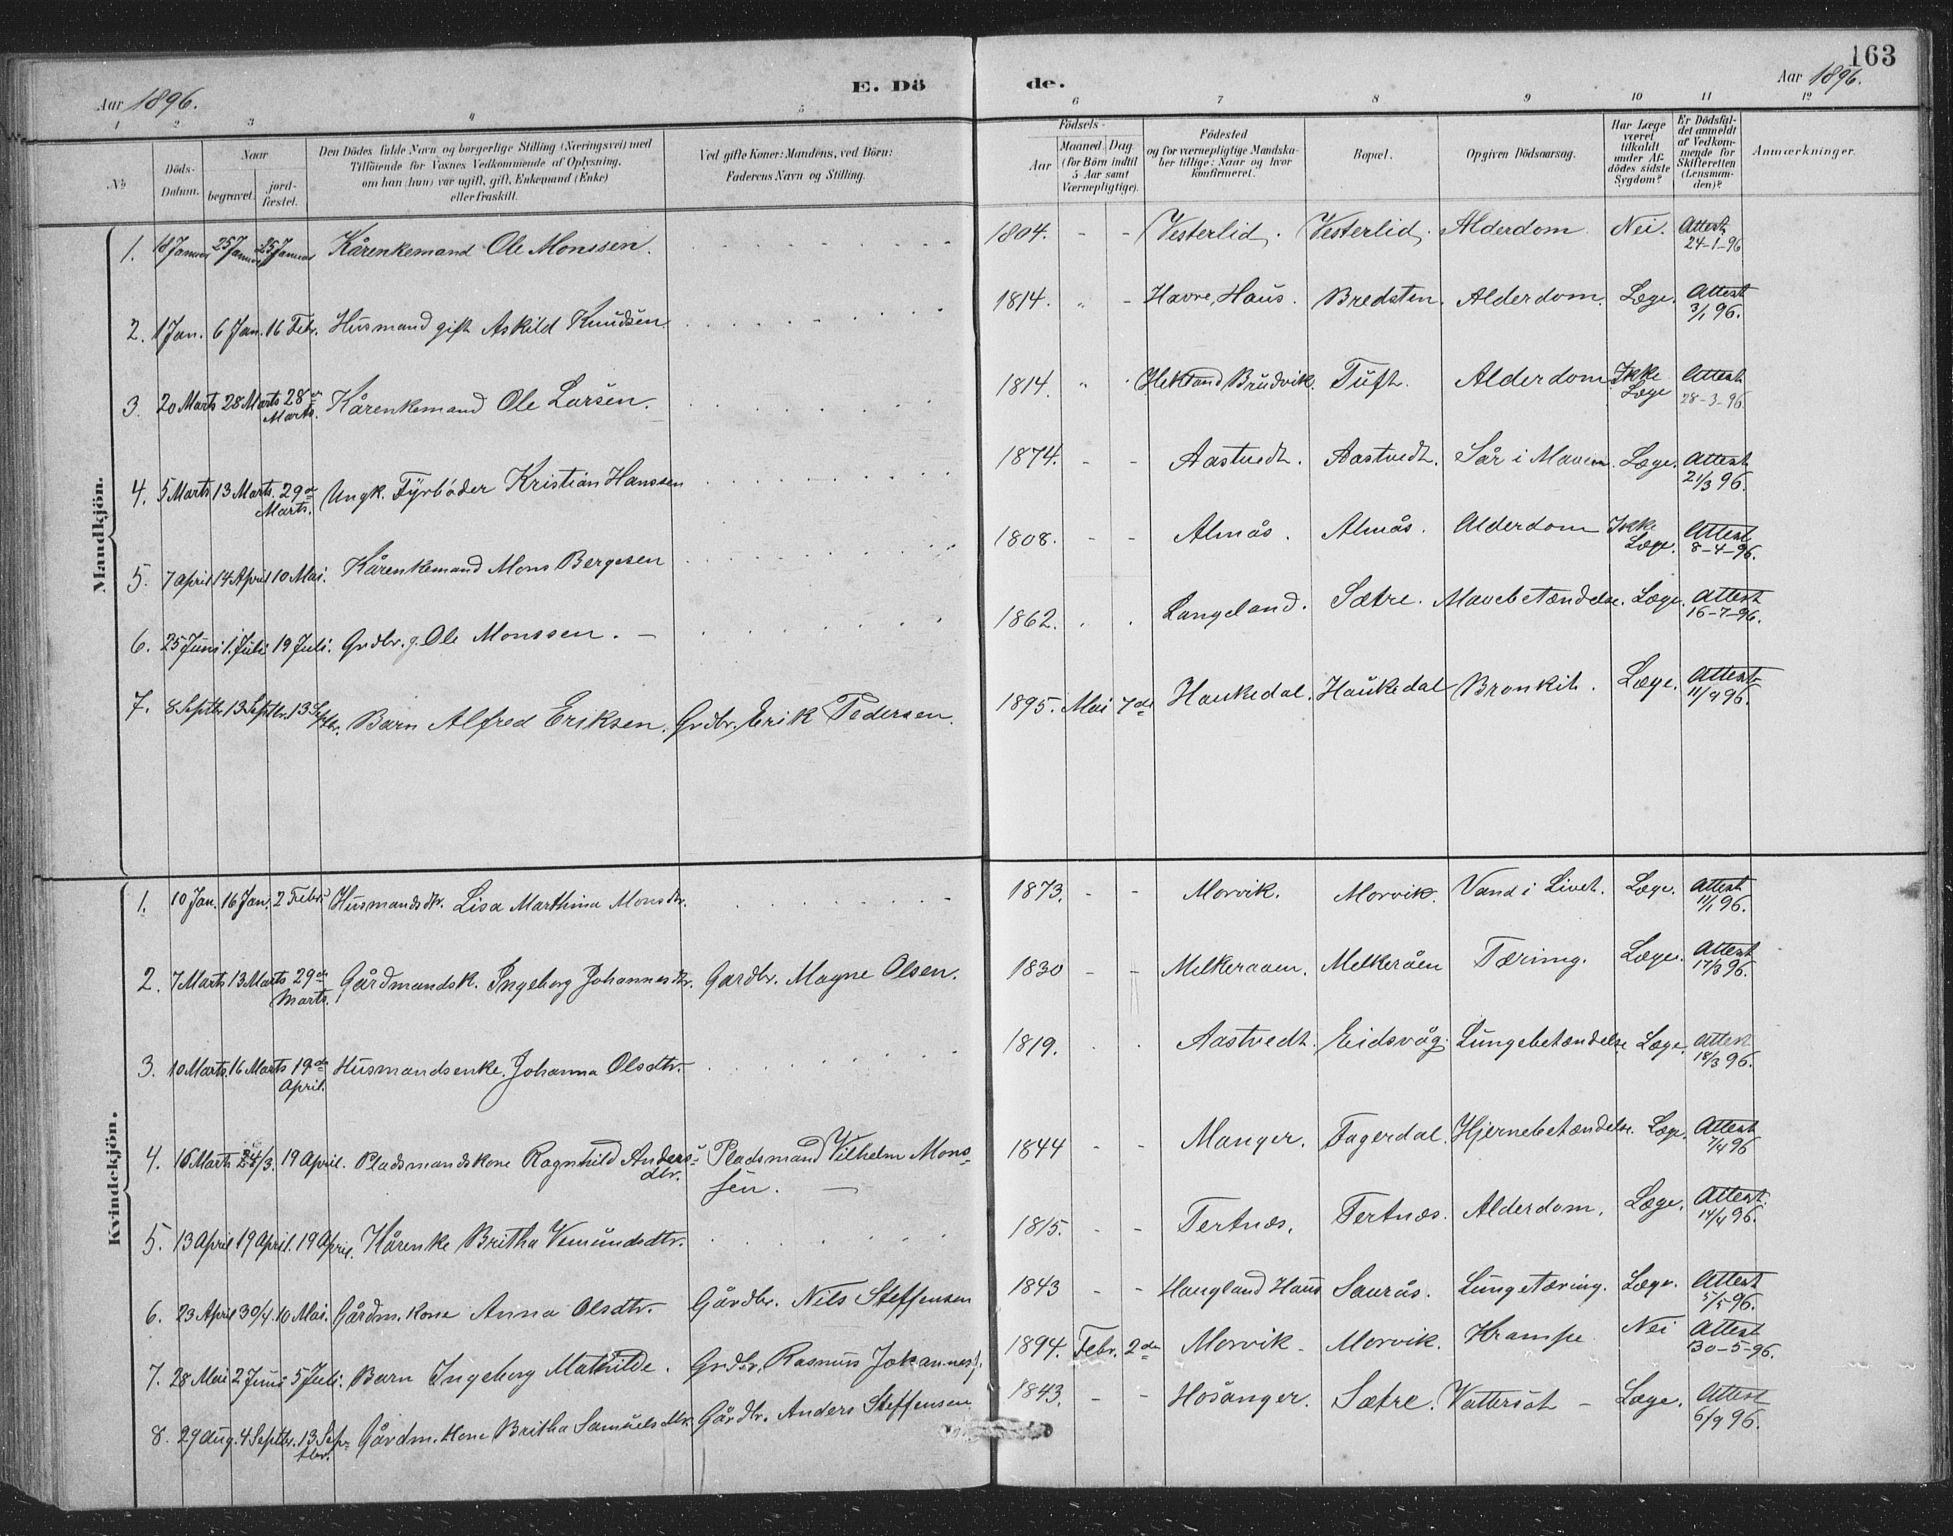 163
E. Dö de.
Aar 1896.
Aar 1896.
1 2 3 4 5 6 7 8 9 10 11 12
№
Döds-Datum.
Naar
begravet.
jordfæstet.
Den Dödes fulde Navn og borgerlige Stilling (Næringsvei) med
Tilföiende for Voxnes Vedkommende af Oplysning,
om han (hun) var ugift, gift, Enkemand (Enke)
eller fraskilt.
Ved gifte Koner: Mandens, ved Börn:
Faderens Navn og Stilling.
Födsels-
Aar
Maaned. Dag
(for Börn indtil
5 Aar samt
Værnepligtige).
Födested
og for værnepligtige Mandska-
ber tillige: Naar og hvor
konfirmeret.
Bopæl.
Opgiven Dödsaarsag.
Har Læge
været
tilkaldt
under Af-
dödes sidste
Sygdom?
Er Dödsfal-
det anmeldt
af Vedkom-
mende for
Skifteretten
(Lensman-
den)?
Anmærkninger.
Mandkjön.
1. 18 Januar 25 Januar 25 Januar Kårenkemand Ole Monssen. 1804. - - Vesterlid. Vesterlid. Alderdom. Nei. Attest 24-1-96
2. 1 Jan. 6 Jan. 16 Febr. Husmand gift Askild Knudsen 1814. " - Havre, Haus. Bredsten. Alderdom. Læge. Attest 3/1 96.
3. 20 Marts 28 Marts 28de Marts. Kårenkemand Ole Larsen. 1814 " . Hekland Brudvik. Tuft. Alderdom Ikke Læge Attest 28-3-96.
4. 5 Marts 13 Marts. 29de Marts. Ungk. Fyrböder Kristian Hanssen 1874. - - Aastvedt. Aastvedt. Sår i Maven. Læge. Attest 21/3 96.
5. 7 April 14 April 10 Mai. Kårenkemand Mons Bergesen 1808. - - Almås. Almås. Alderdom Ikke Læge. Attest 8-4-96.
6. 25 Juni 1. Juli 19 Juli. Grdbr. g. Ole Monssen. - 1862. . . Langeland. Sætre. Mavebetændelse. Læge. Attest 16-7-96.
7. 8 Septbr. 13 Septbr. 13 Septbr. Barn Alfred Eriksen. Grdbr. Erik Pedersen. 1895. Mai 7de Haukedal. Haukedal Bronkit. Læge. Attest 11/9 96.
Kvindekjön.
1. 10 Jan. 16 Jan. 2 Febr. Husmandsdtr. Lisa Marthina Monsdtr. 1873. - - Morvik. Morvik. Vand i Livet. Læge. Attest 11/1 96.
2. 7 Marts 13 Marts 29de Marts. Gårdmandsk. Ingeborg Johannesdtr. Gardbr. Magne Olsen. 1830 - - Melkeraaen. Melkeråen Tæring. Læge. Attest 17/3 96.
3. 10 Marts. 16 Marts 19de April. Husmandsenke. Johanna Olsdtr. 1819. . . Aastvedt. Eidsvåg. Lungebetændelse Læge. Attest 18/3 96.
4. 16 Marts 24/3. 19 April. Pladsmandskone Ragnhild Andersdtr. Pladsmand Vilhelm Monssen. - 1844 - - Manger. Fagerdal. Hjernebetændelse. Læge. Attest 7/4 96
5. 13 April 19 April. 19 April. Kårenke Britha Vemundsdtr. 1815. - - Tertnæs. Tertnæs. Alderdom. Læge. Attest 14/4 96.
6. 23 April 30/4. 10 Mai. Gårdm. kone Anna Olsdtr. Gårdbr. Nils Steffensen 1843 - - Haugland Haus Saurås. Lungetæring. Læge. Attest 5/5 96.
7. 28 Mai 2 Juni 5 Juli. Barn Ingeborg Mathilde. Grdbr. Rasmus Johannes 1894. Febr. 2de Morvik - Morvik. Krampe Nei Attest 30-5-96.
8. 29 Aug. 4 Septbr. 13 Septbr. Gårdm. kone Britha Samuelsdtr. Gårdbr. Anders Steffensen 1843. - - Hosanger. Sætre. Vattersot - Læge. Attest 6/9 96.